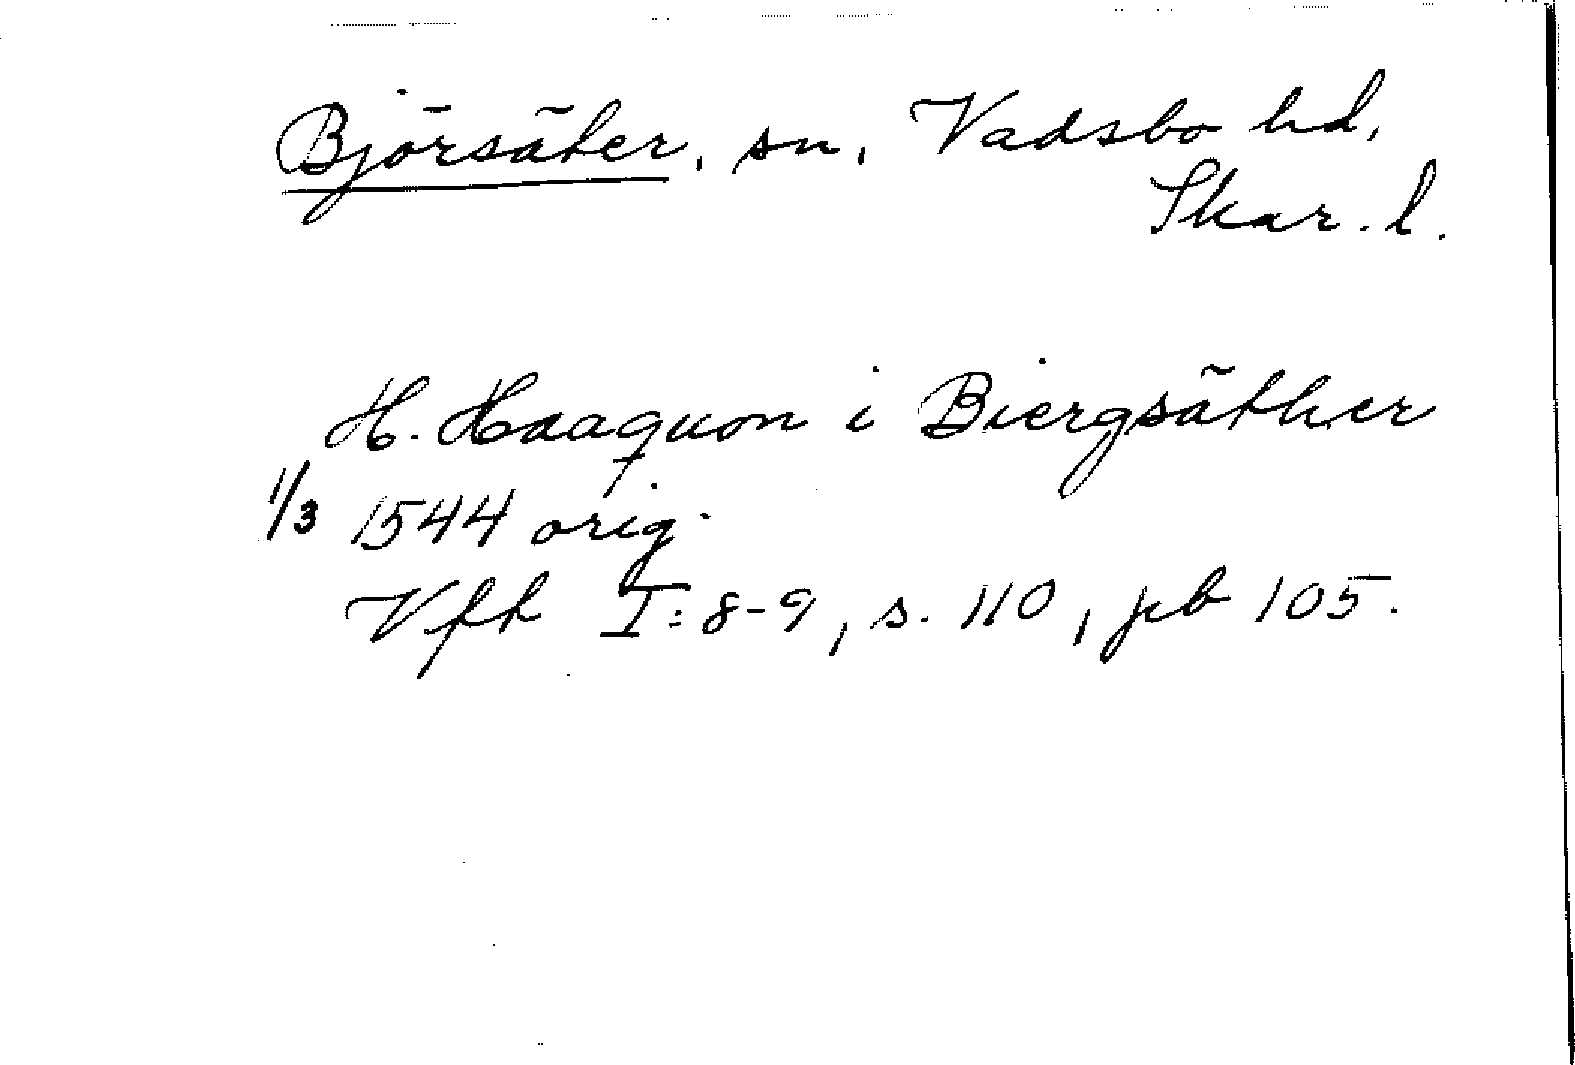 Björsäter, sn, Vadsbo hd,
Skar. l.
H. Haaquon i Biergsäther
1/3 1544 orig.
Vfh I: 8-9, s. 110, pb 105.